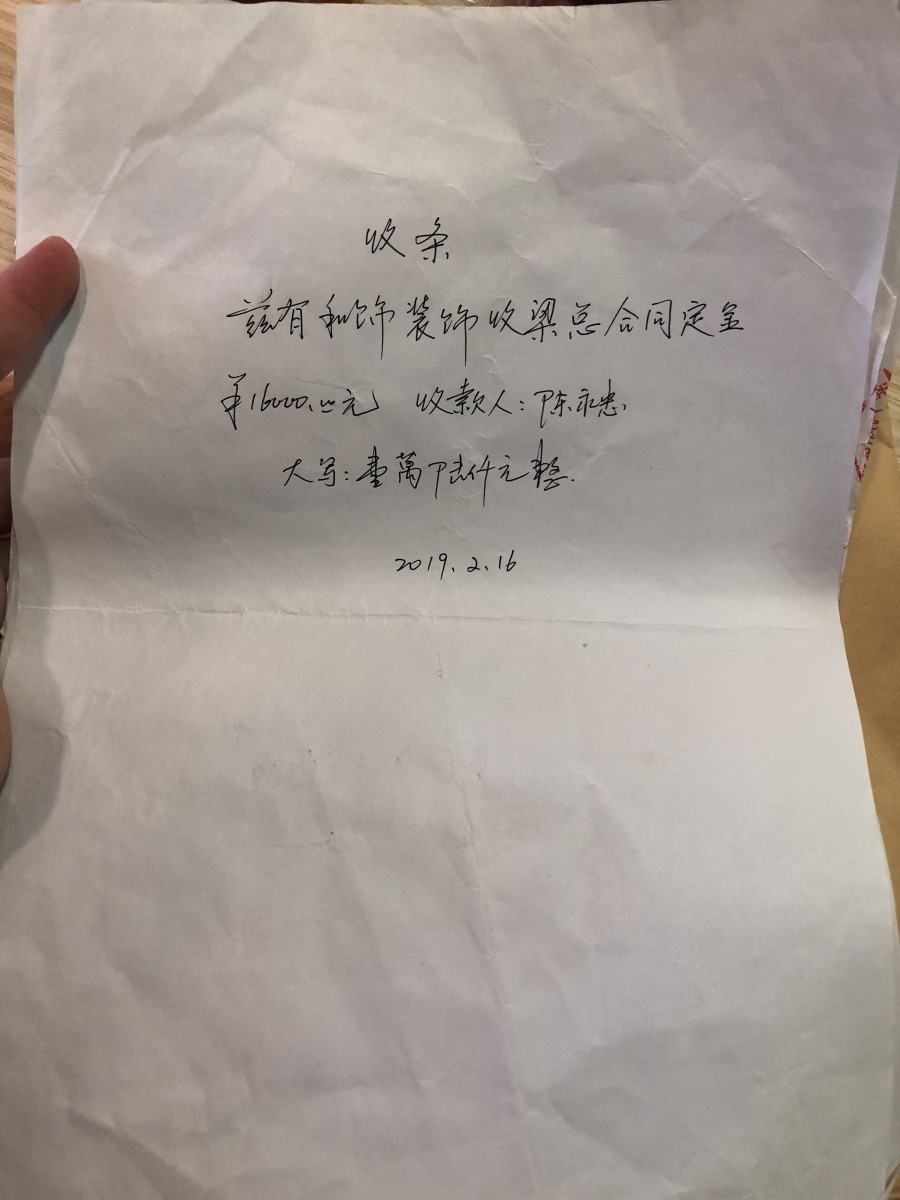 收条
兹有和饰装饰收梁总合同定金
¥16000.00元 收款人:陈永忠
大写:壹萬陆仟元整.
2019.2.16